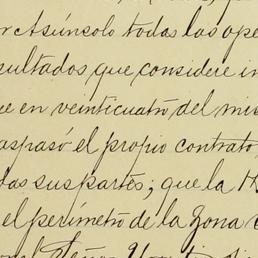 r Asúnsolo todas las ope
sultados que considere in
ue en veinticuatro del mis
aspasó el propio contrato,
das sus partes; que la H
el perímetro de la Zona